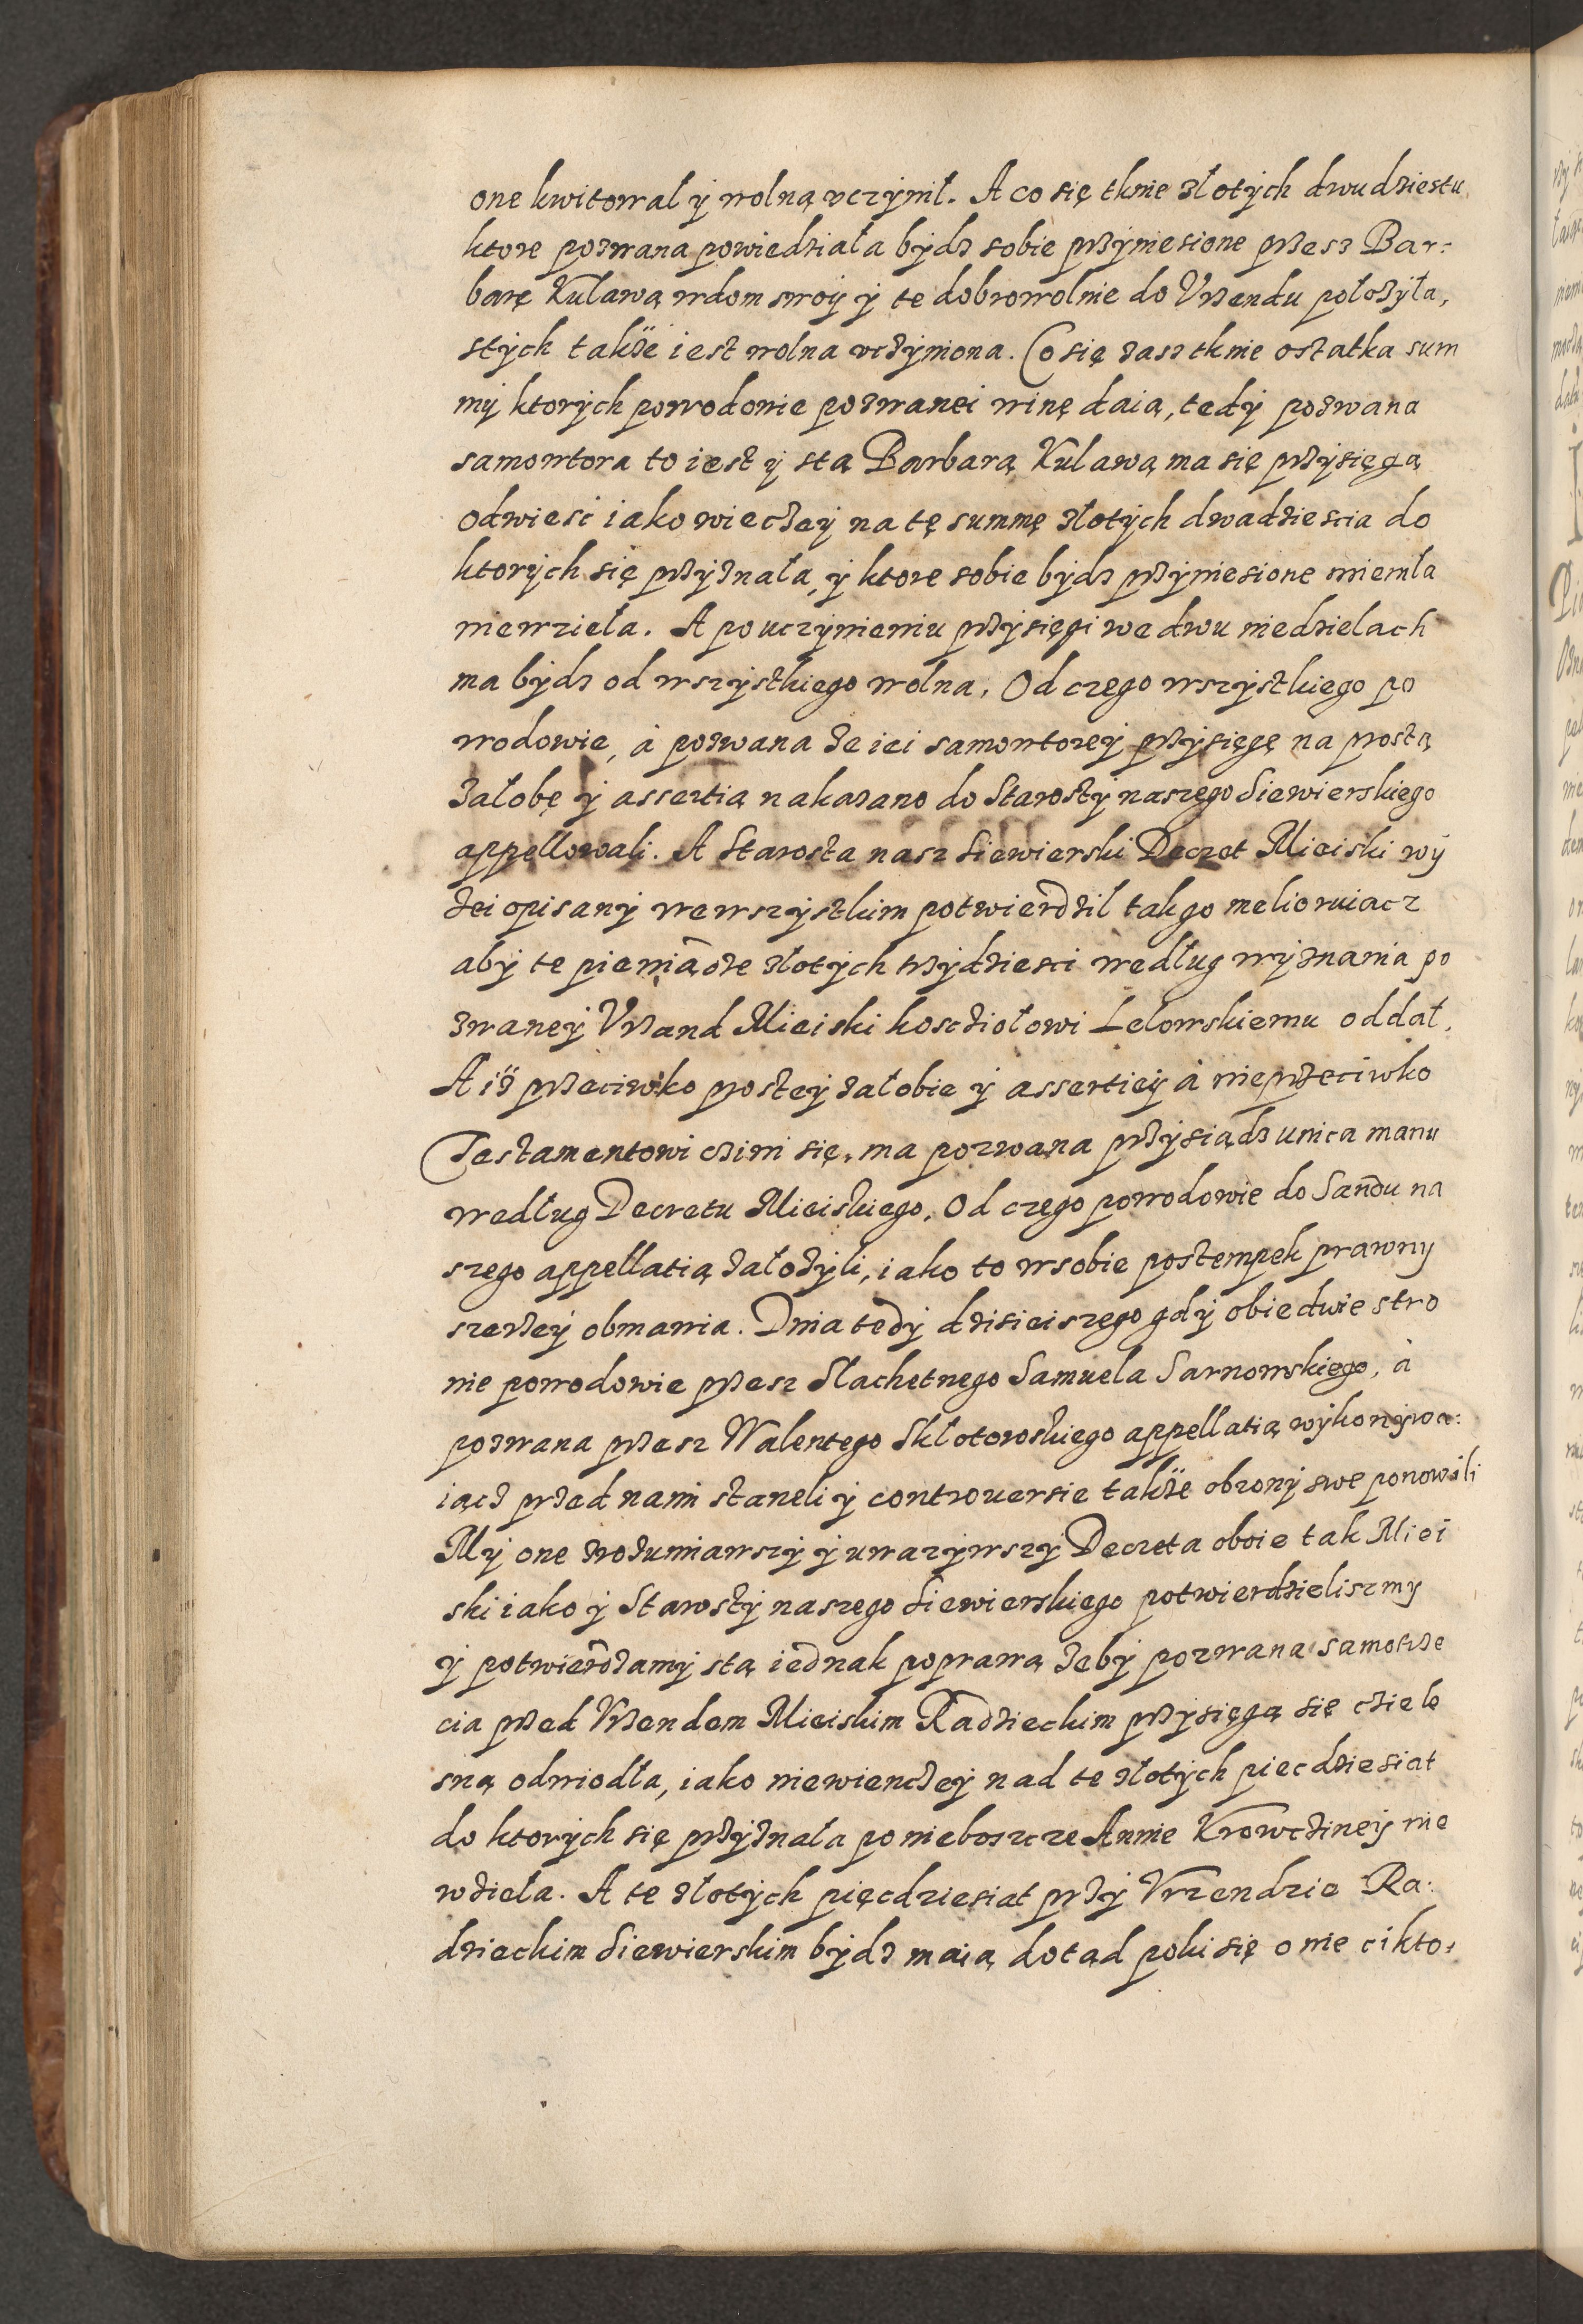 one kwitował ÿ wolną vczÿnił. A co się tknie złotÿch dwudziestu
ktore pozwana powiedziała bÿdz sobie przÿniesione przesz Bar:
barę Kulawą wdom swoÿ ÿ te dobrowolnie do Vrzendu połozÿła,
stÿch takze iest wolna vczÿniona. Co się zasz tknie ostatka sum
mÿ ktorÿch powodowie pozwanei winę daią, tedÿ pozwana
samowtora to iest ÿ stą Barbarą Kulawą ma się przÿsięgą
odwiesć iako wieczeÿ na tę summę złotÿch dwadziescia do
ktorÿch się przÿznała, ÿ ktore sobie bÿdz przÿniesione mieniła
niewzieła. A po uczÿnieniu przÿsięgi we dwu niedzielach
ma bÿdz od wszÿstkiego wolna. Od czego wszÿstkiego po
wodowie, à pozwana ze iei samowtoreÿ przÿsięgę na prostą
załobę ÿ assertią nakazano do Starostÿ naszego Siewierskiego
appellowali. A Starosta nasz Siewierski Decret Mieiski wÿ
zei opisanÿ wewszÿstkim potwierdził tak go melioruiacz
abÿ te pieniądze złotÿch trzÿdziesci według wÿznania po
zwaneÿ Vrzand Mieiski kosciołowi Lelowskiemu oddał.
A iz przeciwko prosteÿ załobie ÿ assertieÿ à nieprzeciwko
Testamentowi czini się, ma pozwana przÿsiądz unica manu
według Decretu Mieiskiego. Od czego powodowie do Sandu na
szego appellatią załozÿli, iako to wsobie postempek prawny
szerzeÿ obmawia. Dnia tedÿ dzisieiszego gdÿ obiedwie stro
nie powodowie przesz Slachetnego Samuela Sarnowskiego, à
pozwana przesz Walentego Skłotowskiego appellatią wÿkonÿwa:
iącz przed nami staneli ÿ controuersie takze obronÿ swe ponowili
Mÿ one zrozumiawszÿ ÿ uwazÿwszÿ Decreta oboie tak Miei
ski iako ÿ Starostÿ naszego Siewierskiego potwierdzieliszmy
ÿ potwierdzamÿ stą iednak poprawą zebÿ pozwana samotrze
cia przed Vrzendem Mieiskim Radzieckim przÿsięgą się cziele
sną odwiodła, iako niewienczeÿ nad te złotÿch piecdziesiat
do ktorÿch się przÿznała po nieboszcze Annie Krowczineÿ nie
wzieła. A te złotÿch pięcdziesiat przÿ Vrzendzie Ra:
dzieckim Siewierskim bÿdz maią dotąd poki się o nie ci kto: